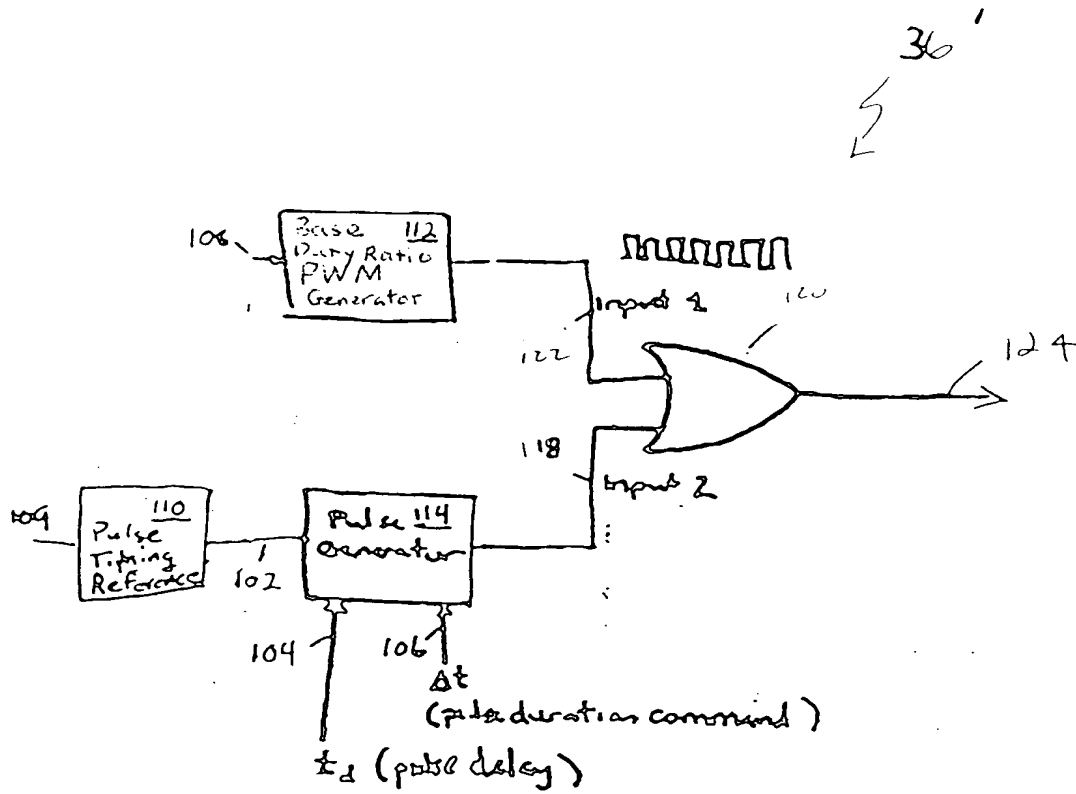 36'
Base 112
Duty Ratio
PWM
Generator
108
Input 1
120
122
124
118
Input 2
109
110
Pulse
Timing
Reference
102
Pulse 114
Generator
104
106
Δt
(pulse duration command)
t_d (pulse delay)